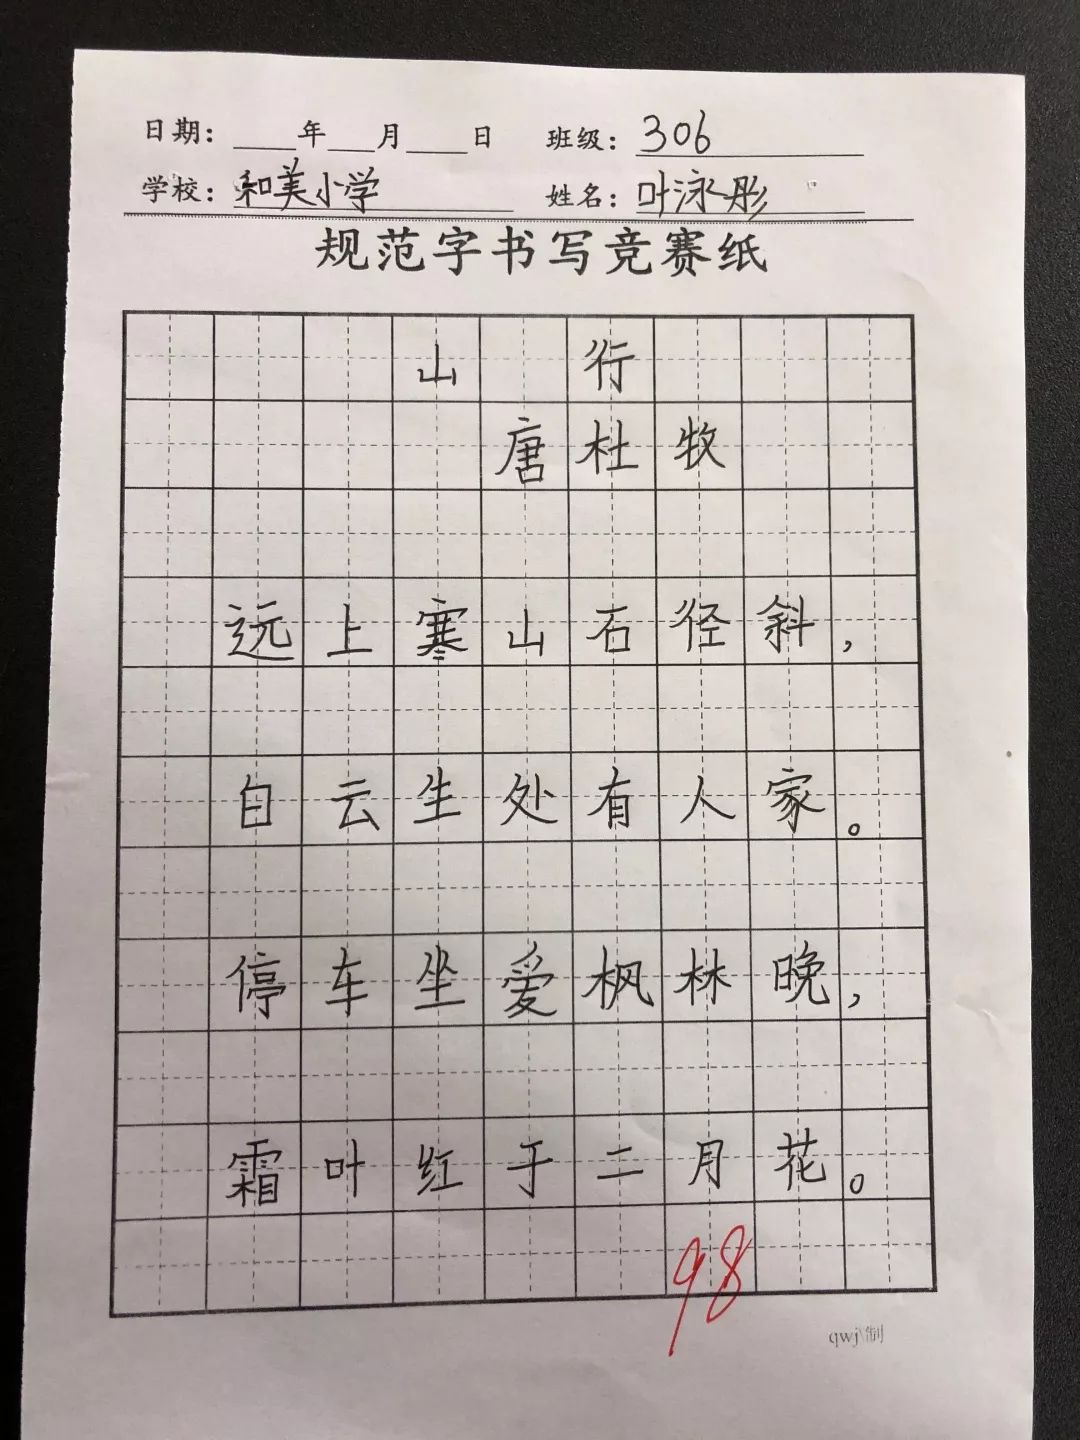 日期：____年___月____日 班级：306
学校：和美小学 姓名：叶泳彤
规范字书写竞赛纸
山 行
唐杜牧
远上寒山石径斜，
白云生处有人家。
停车坐爱枫林晚，
霜叶红于二月花。
98
qwj\制